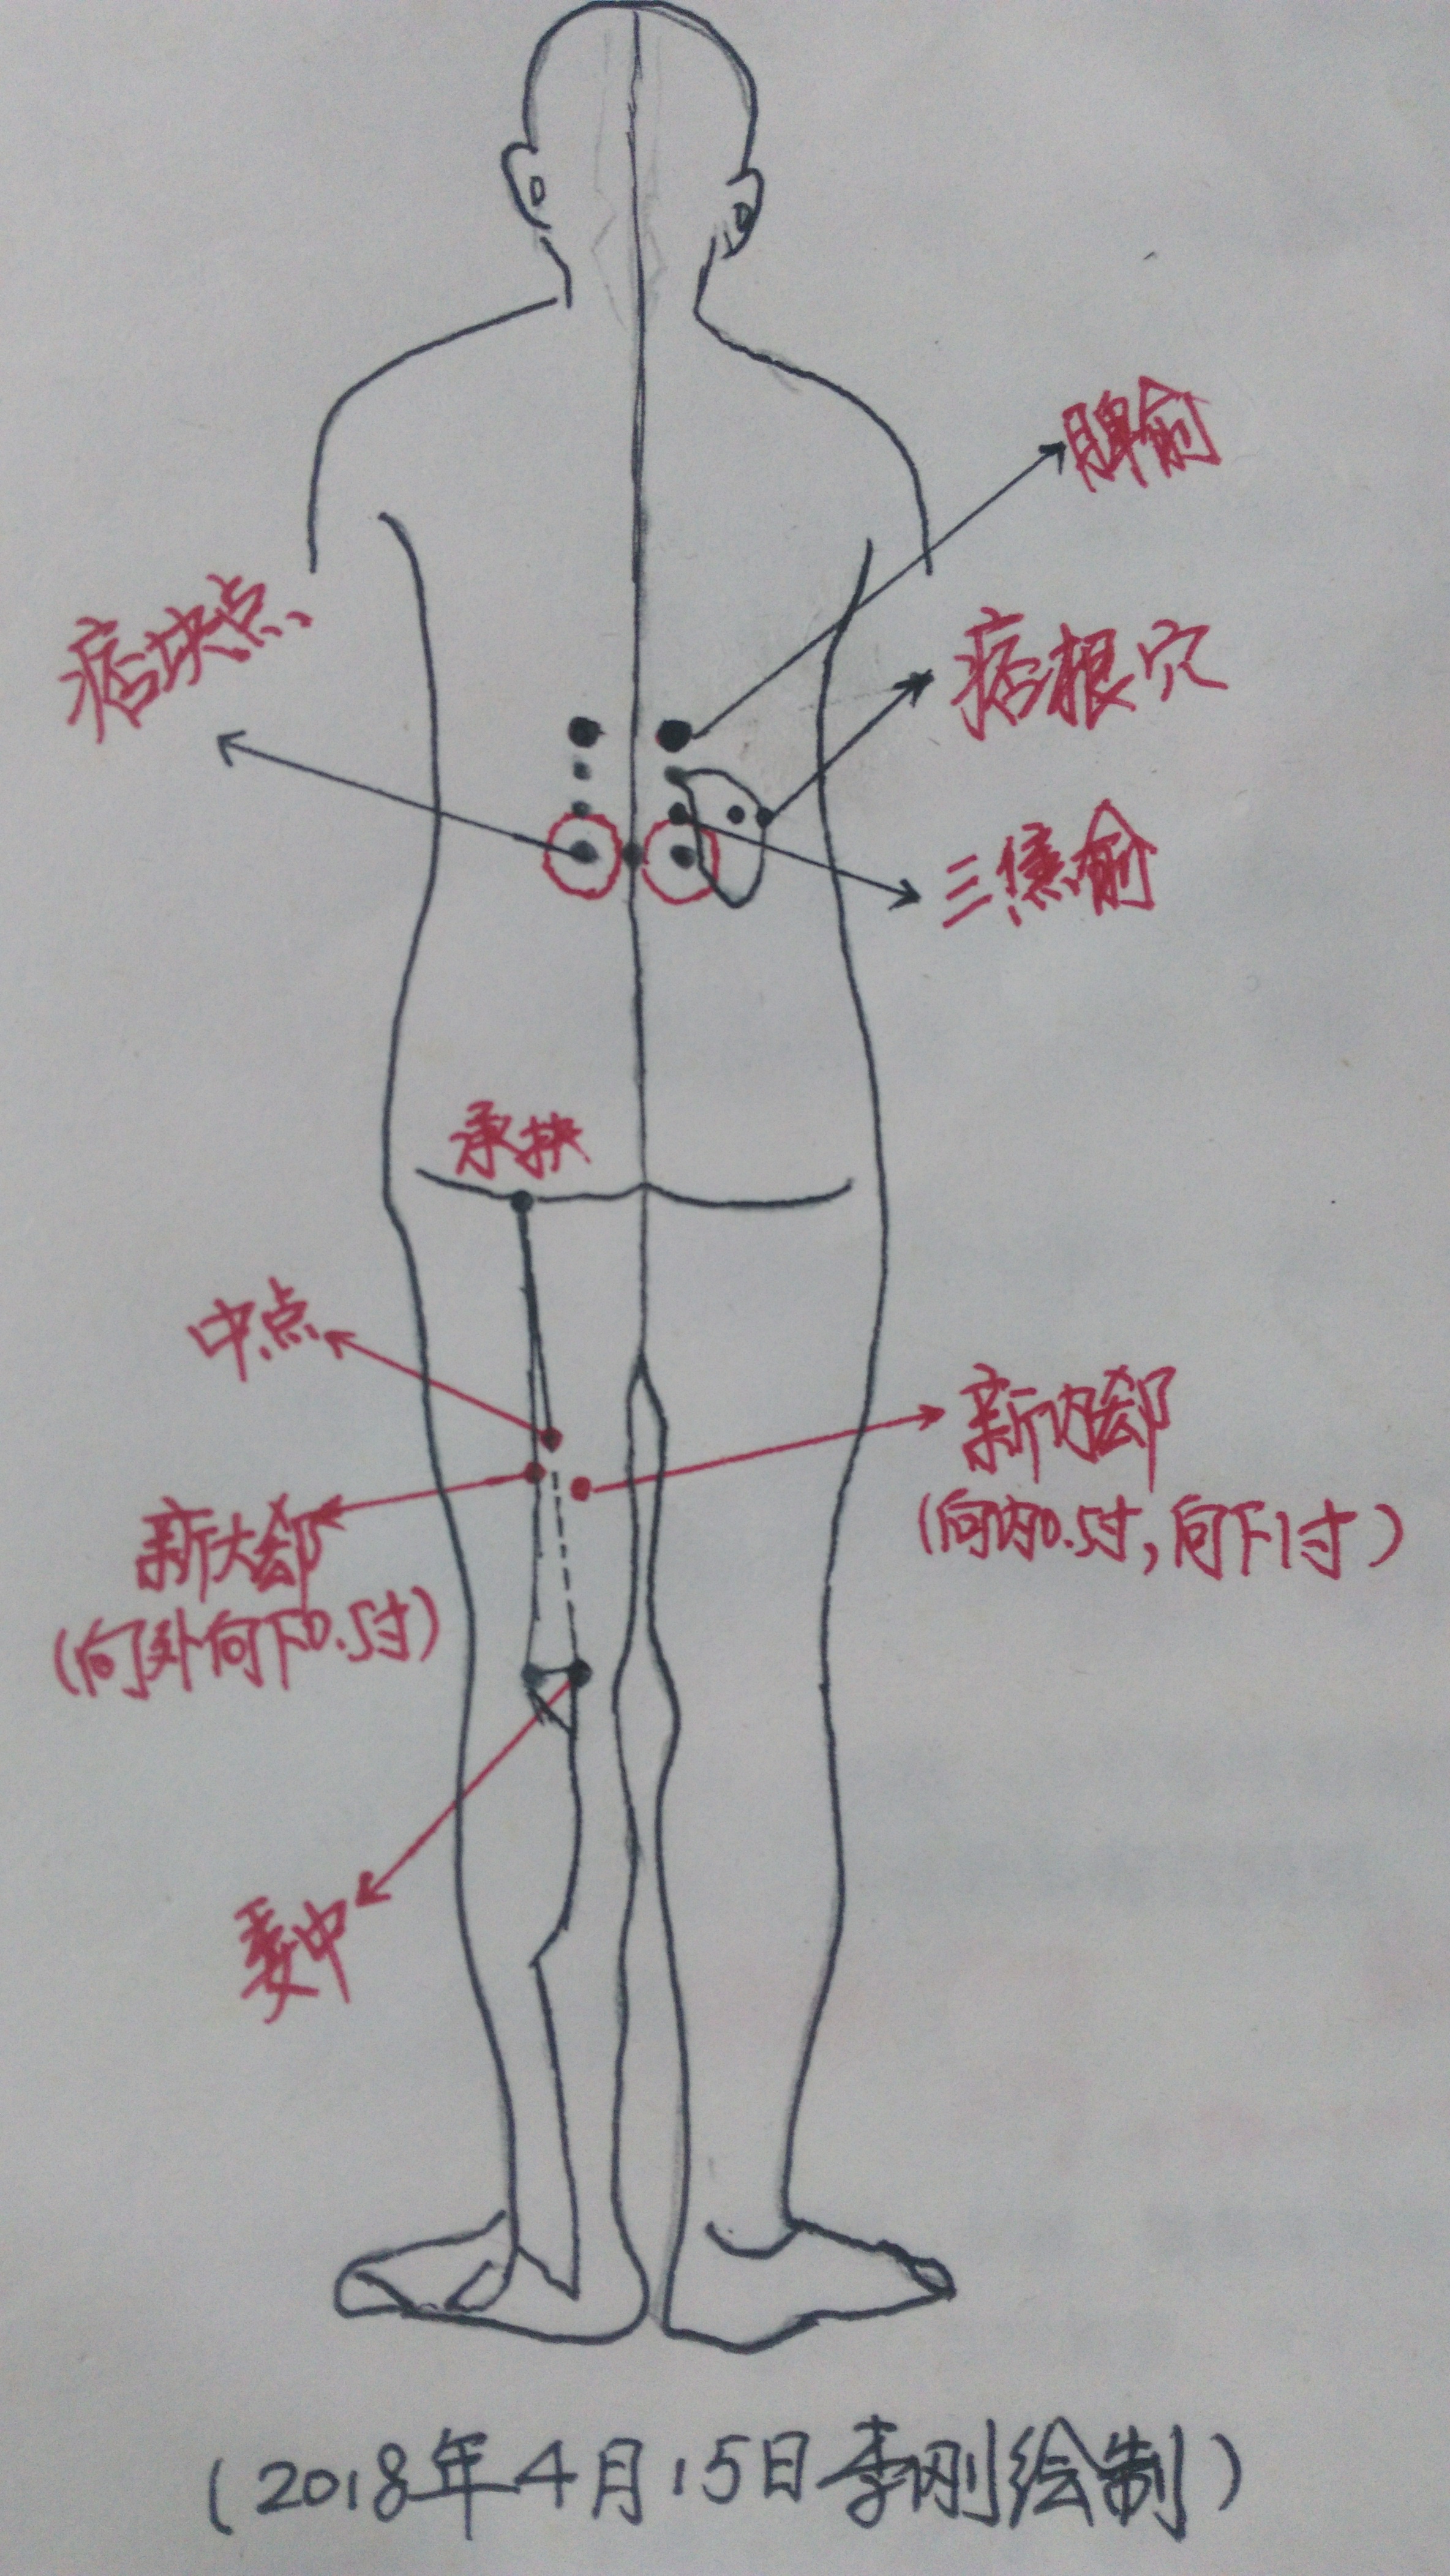 脾俞
痞块点
痞根穴
三焦俞
承扶
中点
新内郄
(向内0.5寸,向下1寸)
新大郄
(向外向下0.5寸)
委中
(2018年4月15日李刚绘制)